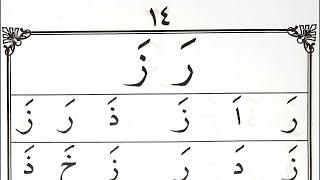 ١٤
رَ زَ
رَ اَ زَ ذَ رَ زَ
زَ دَ رَ زَ خَ ذَ